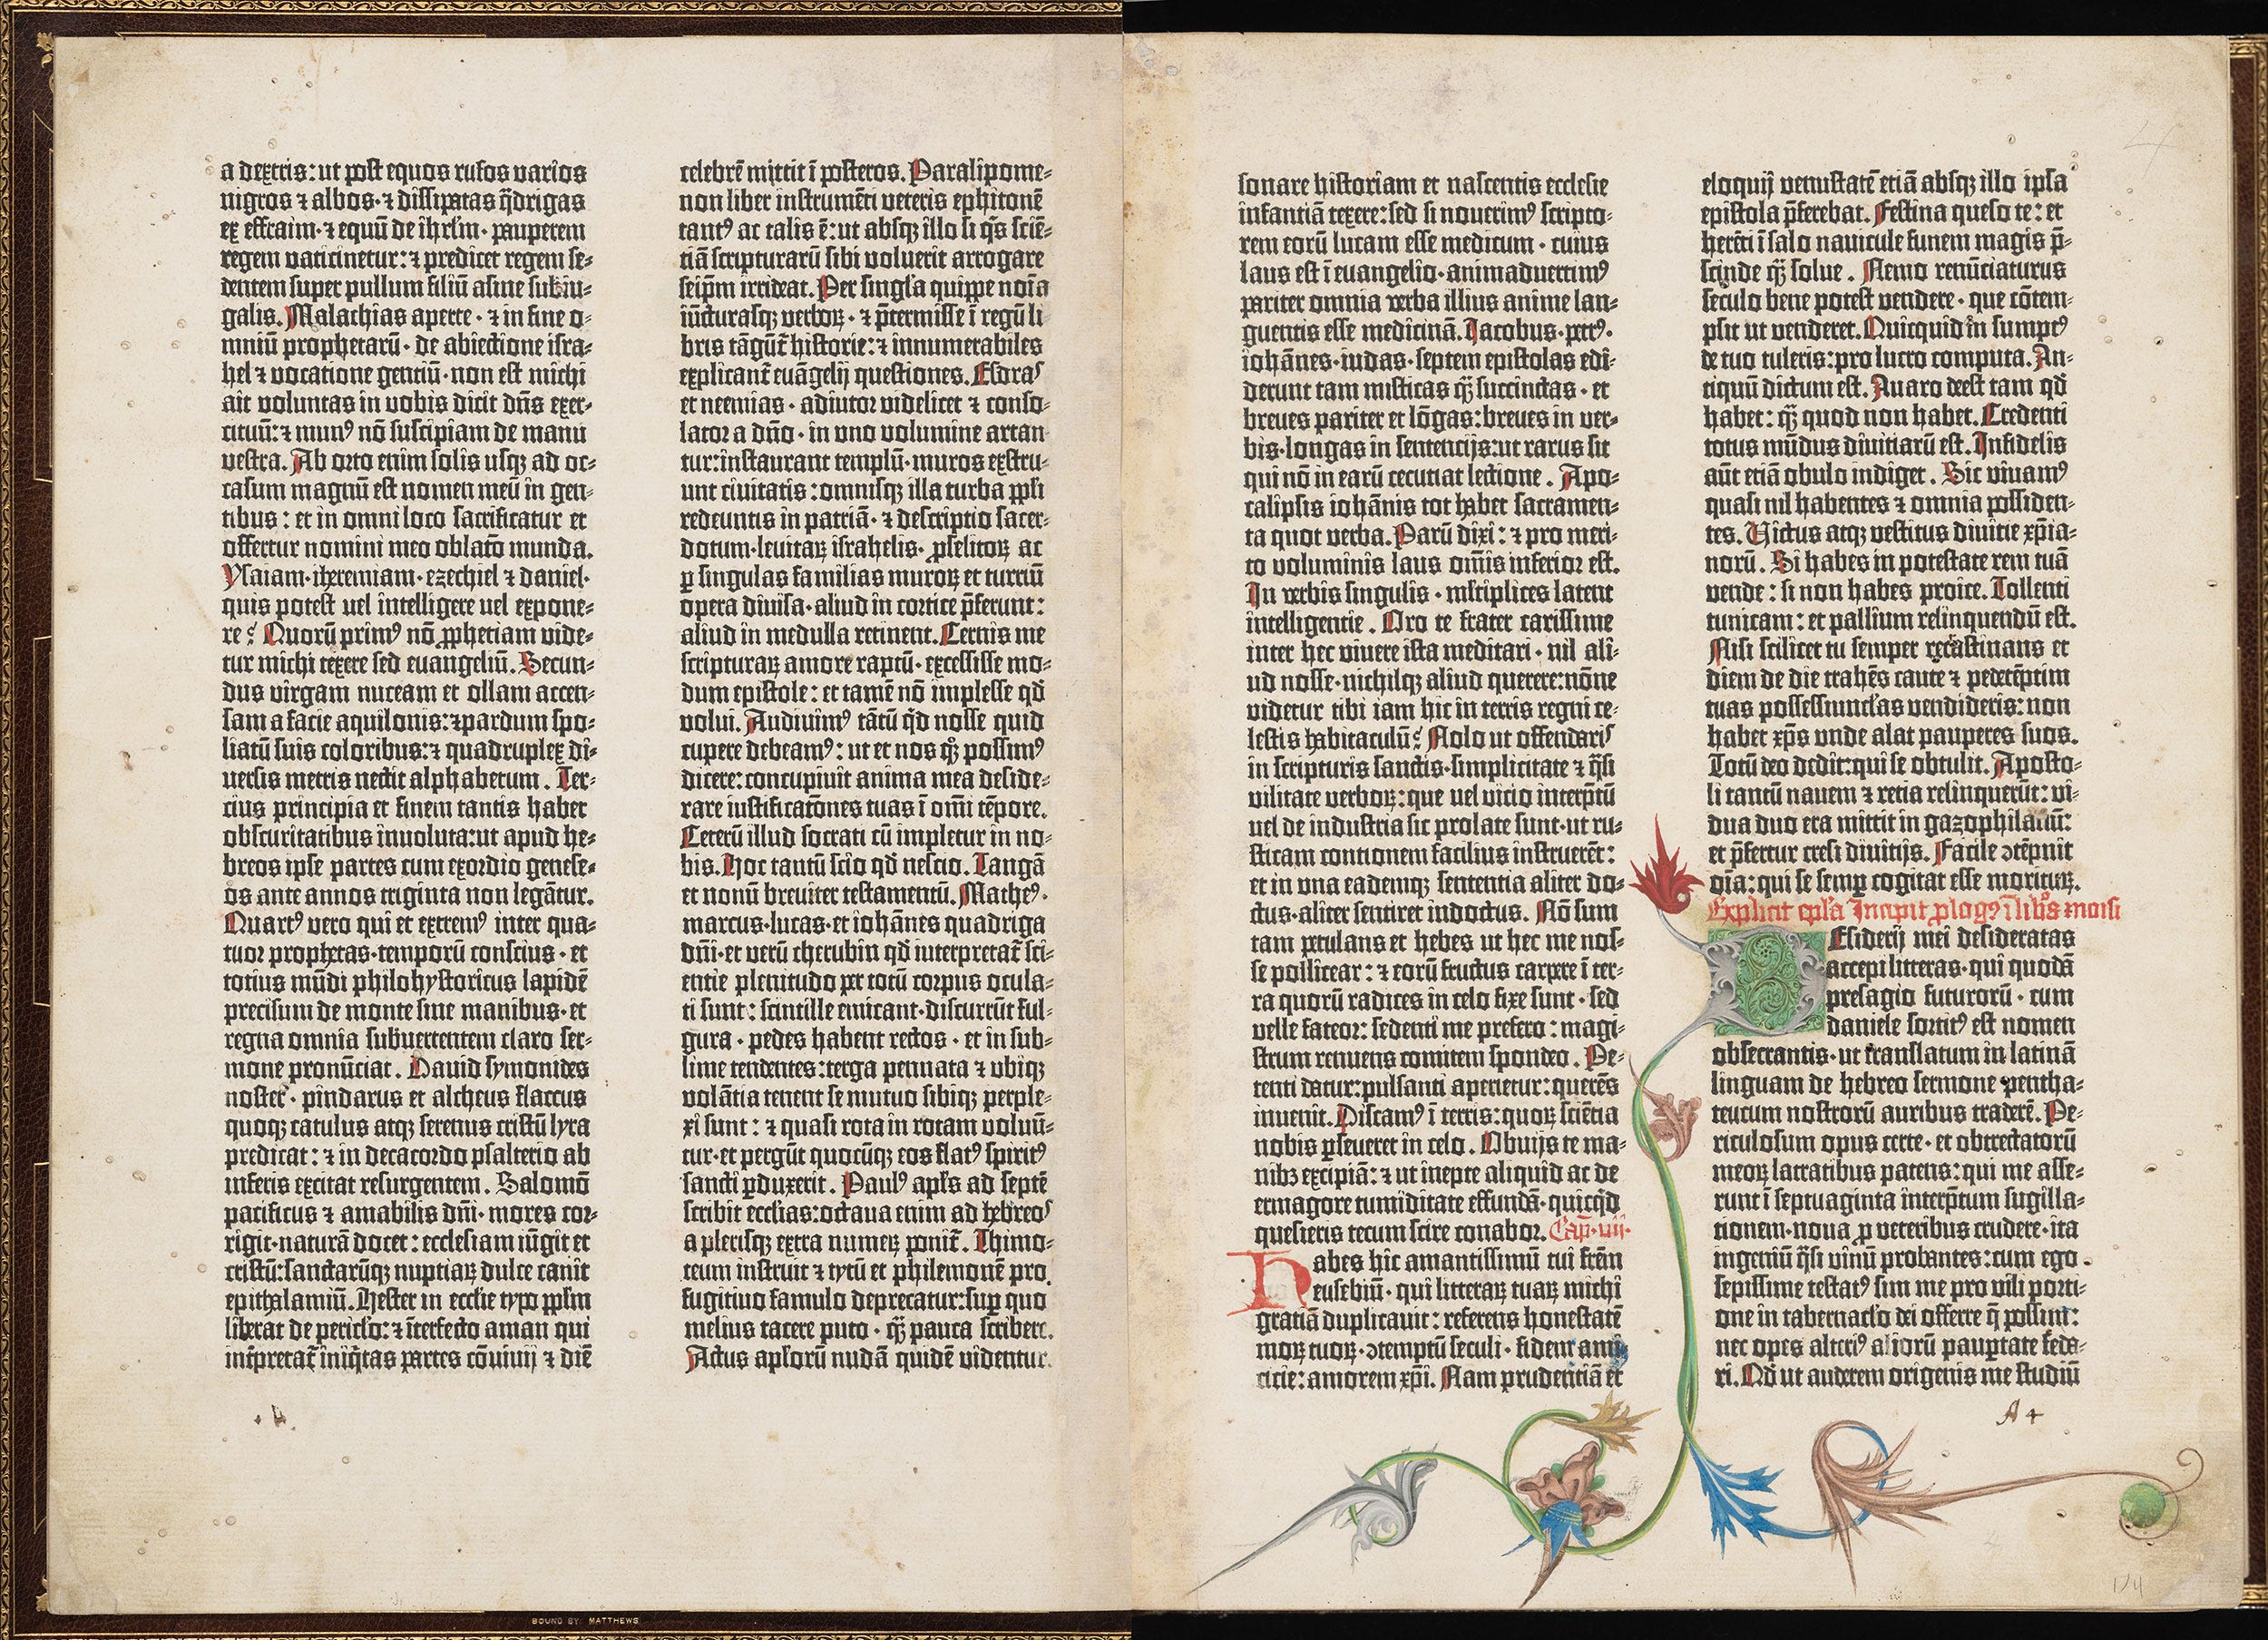 a dextris: ut post equos rufos varios
nigros ⁊ albos· ⁊ dissipatas q̃drigas
ex effraim· ⁊ equū de ihrl'm· pauperem
regem vaticinetur: ⁊ predicet regem se⸗
dentem super pullum filiū asine subiu⸗
galis. Malachias aperte· ⁊ in fine o⸗
mniū prophetarū· de abiectione isra⸗
hel ⁊ vocatione gentiū· non est michi
ait voluntas in vobis dicit dn̄s exer⸗
cituū: ⁊ munꝰ nō suscipiam de manu
vestra. Ab orto enim solis usqꝫ ad oc⸗
casum magnū est nomen meū in gen⸗
tibus: et in omni loco sacrificatur et
offertur nomini meo oblatō munda.
Ysaiam· iheremiam· ezechiel ⁊ daniel·
quis potest vel intelligere vel expone⸗
re? Quorū primꝰ nō ꝓphetiam vide⸗
tur michi texere sed euangeliū. Secun⸗
dus virgam nuceam et ollam accen⸗
sam a facie aquilonis: ⁊ pardum spo⸗
liatū suis coloribus: ⁊ quadruplex di⸗
versis metris nectit alphabetum. Ter⸗
cius principia et finem tantis habet
obscuritatibus involuta: ut apud he⸗
breos ipse partes cum exordio genese⸗
os ante annos triginta non legātur.
Quartꝰ vero qui et extremꝰ inter qua⸗
tuor prophetas· temporū conscius· et
totius mūdi philohystoricus lapidē
precisum de monte sine manibus· et
regna omnia subvertentem claro ser⸗
mone pronūciat. David symonides
noster· pindarus et alcheus flaccus
quoqꝫ catulus atqꝫ serenus cristū lyra
predicat: ⁊ in decacordo psalterio ab
inferis excitat resurgentem. Salomō
pacificus ⁊ amabilis dn̄i· mores cor⸗
rigit· naturā docet: ecclesiam iūgit et
cristū: sanctarūqꝫ nuptiaꝝ dulce canit
epithalamiū. Hester in ecclīe typo pp̄lm
liberat de pericl'o: ⁊ īterfecto aman qui
int̄pretat̄ iniq̄tas partes cōviviū ⁊ diē
celebrē mittit ī posteros. Paralipome⸗
non liber instrumēti veteris ephitonē
tantꝰ ac talis ē: ut absqꝫ illo si q̄s sciē⸗
tiā scripturarū sibi voluerit arrogare
seip̄m irrideat. Per singl'a quippe noīa
iūcturasqꝫ verboꝝ· ⁊ p̄termisse ī regū li
bris tāgūt̄ historie: ⁊ innumerabiles
explicant̄ euāgelij questiones. Esdras
et neemias· adiutor videlicet ⁊ conso⸗
lator a dn̄o· in vno volumine artan
tur: instaurant templū· muros exstru⸗
unt civitatis: omnisqꝫ illa turba ppl'i
redeuntis in patriā· ⁊ descriptio sacer⸗
dotum· levitaꝝ israhelis· ꝓselitoꝝ ac
ꝑ singulas familias muroꝝ et turriū
opera divisa· aliud in cortice p̄ferunt:
aliud in medulla retinent. Cernis me
scripturaꝝ amore raptū· excessisse mo⸗
dum epistole: et tamē nō implesse qd̄
volui. Audivimꝰ tātū qd̄ nosse quid
cupere debeamꝰ: ut et nos q̊qꝫ possimꝰ
dicere: concupivit anima mea deside⸗
rare iustificatōnes tuas ī om̄i tēpore.
Ceterū illud socrati cū impletur in no⸗
bis. Hoc tantū scio qd̄ nescio. Tangā
et novū breviter testamentū. Matheꝰ·
marcus· lucas· et iohānes quadriga
dn̄i· et verū cherubin qd̄ interpretat̄ sci⸗
entie plenitudo per totū corpus ocula⸗
ti sunt: scintille emicant· discurrūt ful⸗
gura· pedes habent rectos· et in sub⸗
lime tendentes: terga pennata ⁊ ubiqꝫ
volātia tenent se mutuo sibiqꝫ perple⸗
xi sunt: ⁊ quasi rota in rotam volvū⸗
tur· et pergūt quocūqꝫ eos flatꝰ spiritꝰ
sancti ꝑduxerit. Paulꝰ apl's ad septē
scribit eccl'ias: octava enim ad hebreos
a plerisqꝫ extra numeꝝ ponit̄. Thimo⸗
teum instruit ⁊ tytū et philemonē pro
fugitivo famulo deprecatur: suꝑ quo
melius tacere puto· q̄ꝫ pauca scribere.
Actus apl'orū nudā quidē videntur
sonare historiam et nascentis ecclesie
infantiā texere: sed si noverimꝰ scripto⸗
rem eorū lucam esse medicum· cuius
laus est ī euangelio· animadvertimꝰ
pariter omnia verba illius anime lan⸗
guentis esse medicinā. Jacobus· petrꝰ·
iohānes· iudas· septem epistolas edi⸗
derunt tam misticas q̄ꝫ succinctas· et
breves pariter et lōgas: breves in ver⸗
bis· longas in sentencijs: ut rarus sit
qui nō in earū cecutiat lectione. Apo⸗
calipsis iohānis tot habet sacramen⸗
ta quot verba. Parū dixi: ⁊ pro meri⸗
to voluminis laus om̄is inferior est.
In verbis singulis· ml'tiplices latent
intelligentie. Oro te frater carissime
inter hec vivere ista meditari· nil ali⸗
ud nosse· nichilqꝫ aliud querere: nōne
videtur tibi iam hic in terris regni ce⸗
lestis habitaculū? Nolo ut offendaris
in scripturis sanctis· simplicitate ⁊ q̄si
vilitate verboꝝ: que vel vicio interp̄tū
vel de industria sic prolate sunt· ut ru⸗
sticam contionem facilius instruerēt:
et in una eademqꝫ sententia aliter do⸗
ctus· aliter sentiret indoctus. Nō sum
tam petulans et hebes ut hec me nos⸗
se pollicear: ⁊ eorū fructus carpere ī ter⸗
ra quorū radices in celo fixe sunt· sed
velle fateor: sedenti me prefero: magi⸗
strum renuens comitem spondeo. Pe⸗
tenti datur: pulsanti aperietur: querēs
invenit. Discamꝰ ī terris: quoꝝ sciētia
nobis ꝑseveret in celo. Obvijs te ma⸗
nibꝫ excipiā: ⁊ ut inepte aliquid ac de
ermagore tumiditate effundā· quicq̄d
quesieris tecum scire conabor. Cap̄. viij.
Habes hic amantissimū tui fr̄em
eusebiū· qui litteraꝝ tuaꝝ michi
gratiā duplicavit: referens honestatē
moꝝ tuoꝝ· ꝯtemptū seculi· fidem ami⸗
cicie: amorem xp̄i. Nam prudentiā et
eloquij venustatē etiā absqꝫ illo ipsa
epistola p̄ferebat. Festina queso te: et
herēti ī salo navicule funem magis p̄⸗
scinde q̄ꝫ solve. Nemo renūciaturus
seculo bene potest vendere· que cōtem⸗
psit ut venderet. Quicquid in sumptꝰ
de tuo tuleris: pro lucro computa. An⸗
tiquū dictum est. Avaro deest tam qd̄
habet: q̄ꝫ quod non habet. Credenti
totus mūdus divitiarū est. Infidelis
aūt etiā obulo indiget. Sic vivamꝰ
quasi nil habentes ⁊ omnia possiden⸗
tes. Victus atqꝫ vestitus divitie xp̄ia⸗
norū. Si habes in potestate rem tuā
vende: si non habes proice. Tollenti
tunicam: et pallium relinquendū est.
Nisi scilicet tu semper recrastinans et
diem de die trahēs caute ⁊ pedetēptim
tuas possessiuncl'as vendideris: non
habet xp̄s unde alat pauperes suos.
Totū deo dedit: qui se obtulit. Aposto⸗
li tantū navem ⁊ retia relinquerūt: vi⸗
dua duo era mittit in gazophilatiū:
et p̄fertur cresi divitijs. Facile ꝯtēpnit
oīa: qui se semꝑ cogitat esse moriturꝝ.
Explicit epl'a Incipit ꝓlogꝰ ī libr̄os moisi
Desiderij mei desideratas
accepi litteras· qui quodā
presagio futurorū· cum
daniele sortitꝰ est nomen
obsecrantis· ut translatum in latinā
linguam de hebreo sermone pentha⸗
teucum nostrorū auribus traderē. Pe⸗
riculosum opus certe· et obtrectatorū
meoꝝ latratibus patens: qui me asse⸗
runt ī septuaginta interp̄tum sugilla⸗
tionem· nova ꝓ veteribus cudere· ita
ingeniū q̄si vinū probantes: cum ego
sepissime testatꝰ sim me pro vili porti⸗
one in tabernacl'o dei offerre q̄ possim:
nec opes alteriꝰ aliorū pauꝑtate feda⸗
ri. Qd̄ ut auderem origenis me studiū
A 4
4
BOUND BY MATTHEWS